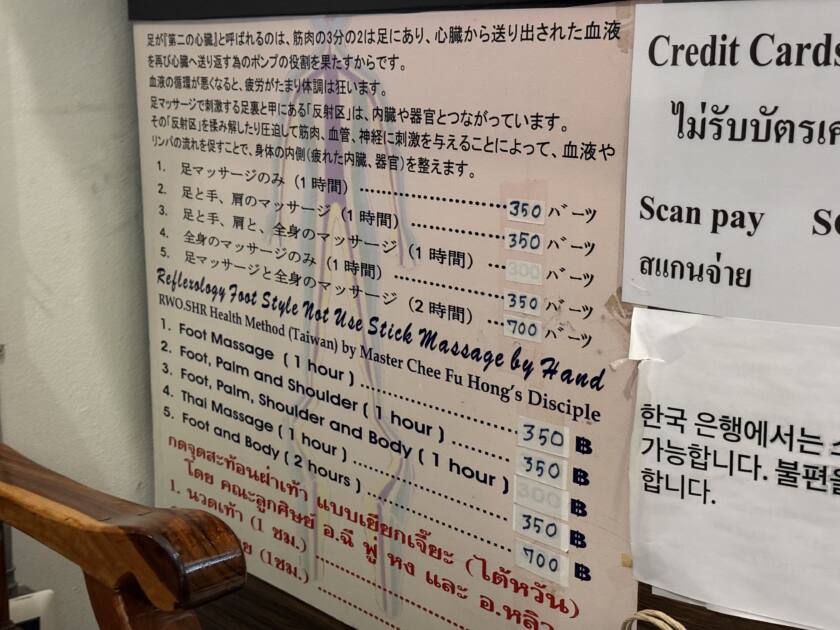 足が『第二の心臓』と呼ばれるのは、筋肉の3分の2は足にあり、心臓から送り出された血液
を再び心臓へ送り返す為のポンプの役割を果たすからです。
血液の循環が悪くなると、疲労がたまり体調は狂います。
足マッサージで刺激する足裏と甲にある「反射区」は、内臓や器官とつながっています。
その「反射区」を揉み解したり圧迫して筋肉、血管、神経に刺激を与えることによって、血液や
リンパの流れを促すことで、身体の内側（疲れた内臓、器官）を整えます。
1. 足マッサージのみ（1時間） 350 バーツ
2. 足と手、肩のマッサージ（1時間） 350 バーツ
3. 足と手、肩と、全身のマッサージ（1時間） 300 バーツ
4. 全身のマッサージのみ（1時間） 350 バーツ
5. 足マッサージと全身のマッサージ（2時間） 700 バーツ
Reflexology Foot Style Not Use Stick Massage by Hand
RWO.SHR Health Method (Taiwan) by Master Chee Fu Hong's Disciple
1. Foot Massage ( 1 hour ) 350 ฿
2. Foot, Palm and Shoulder ( 1 hour ) 350 ฿
3. Foot, Palm, Shoulder and Body ( 1 hour ) 300 ฿
4. Thai Massage ( 1 hour ) 350 ฿
5. Foot and Body ( 2 hours ) 700 ฿
กดจุดสะท้อนฝ่าเท้า แบบเยียกเจี๊ยะ (ไต้หวัน)
โดย คณะลูกศิษย์ อ.ฉี ฟู หง และ อ.หลิว
1. นวดเท้า (1 ชม.)
(1ชม.)
Credit Cards
ไม่รับบัตรเ
Scan pay
สแกนจ่าย
한국 은행에서는
가능합니다. 불편을
합니다.